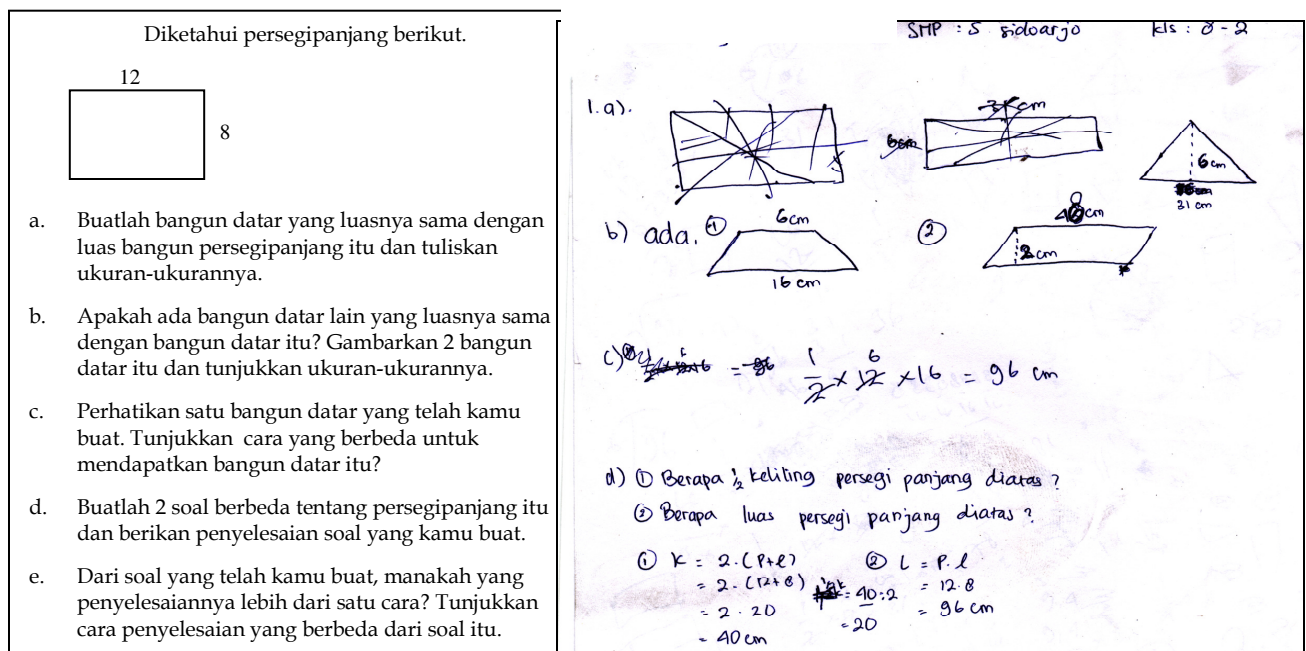 Diketahui persegipanjang berikut.
12
8
a. Buatlah bangun datar yang luasnya sama dengan
luas bangun persegipanjang itu dan tuliskan
ukuran-ukurannya.
b. Apakah ada bangun datar lain yang luasnya sama
dengan bangun datar itu? Gambarkan 2 bangun
datar itu dan tunjukkan ukuran-ukurannya.
c. Perhatikan satu bangun datar yang telah kamu
buat. Tunjukkan cara yang berbeda untuk
mendapatkan bangun datar itu?
d. Buatlah 2 soal berbeda tentang persegipanjang itu
dan berikan penyelesaian soal yang kamu buat.
e. Dari soal yang telah kamu buat, manakah yang
penyelesaiannya lebih dari satu cara? Tunjukkan
cara penyelesaian yang berbeda dari soal itu.
SMP : 5 sidoarjo kls : 8 - 2
1.a).
cm
6cm
6cm
31 cm
b) ada. ①
6cm
16 cm
②
8 cm
2cm
c)
= 96
1/2 x 12 6 x 16 = 96 cm
d) ① Berapa 1/2 keliling persegi panjang diatas ?
② Berapa luas persegi panjang diatas ?
① K = 2.(P+l)
= 2.(12+8)
= 2 . 20
= 40 cm
= 40:2
= 20
② L = P.l
= 12.8
= 96 cm